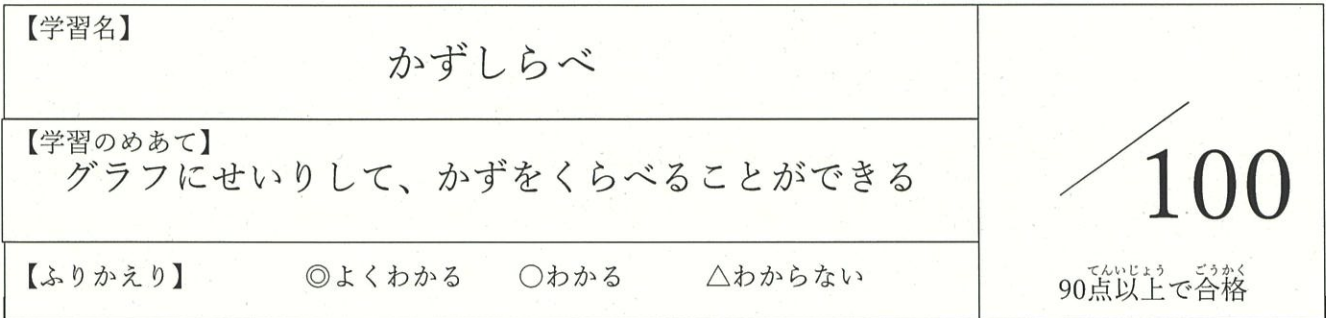 【学習名】
かずしらべ
【学習のめあて】
グラフにせいりして、かずをくらべることができる
【ふりかえり】 ◎よくわかる ○わかる △わからない
/100
てんいじょう ごうかく
90点以上で合格